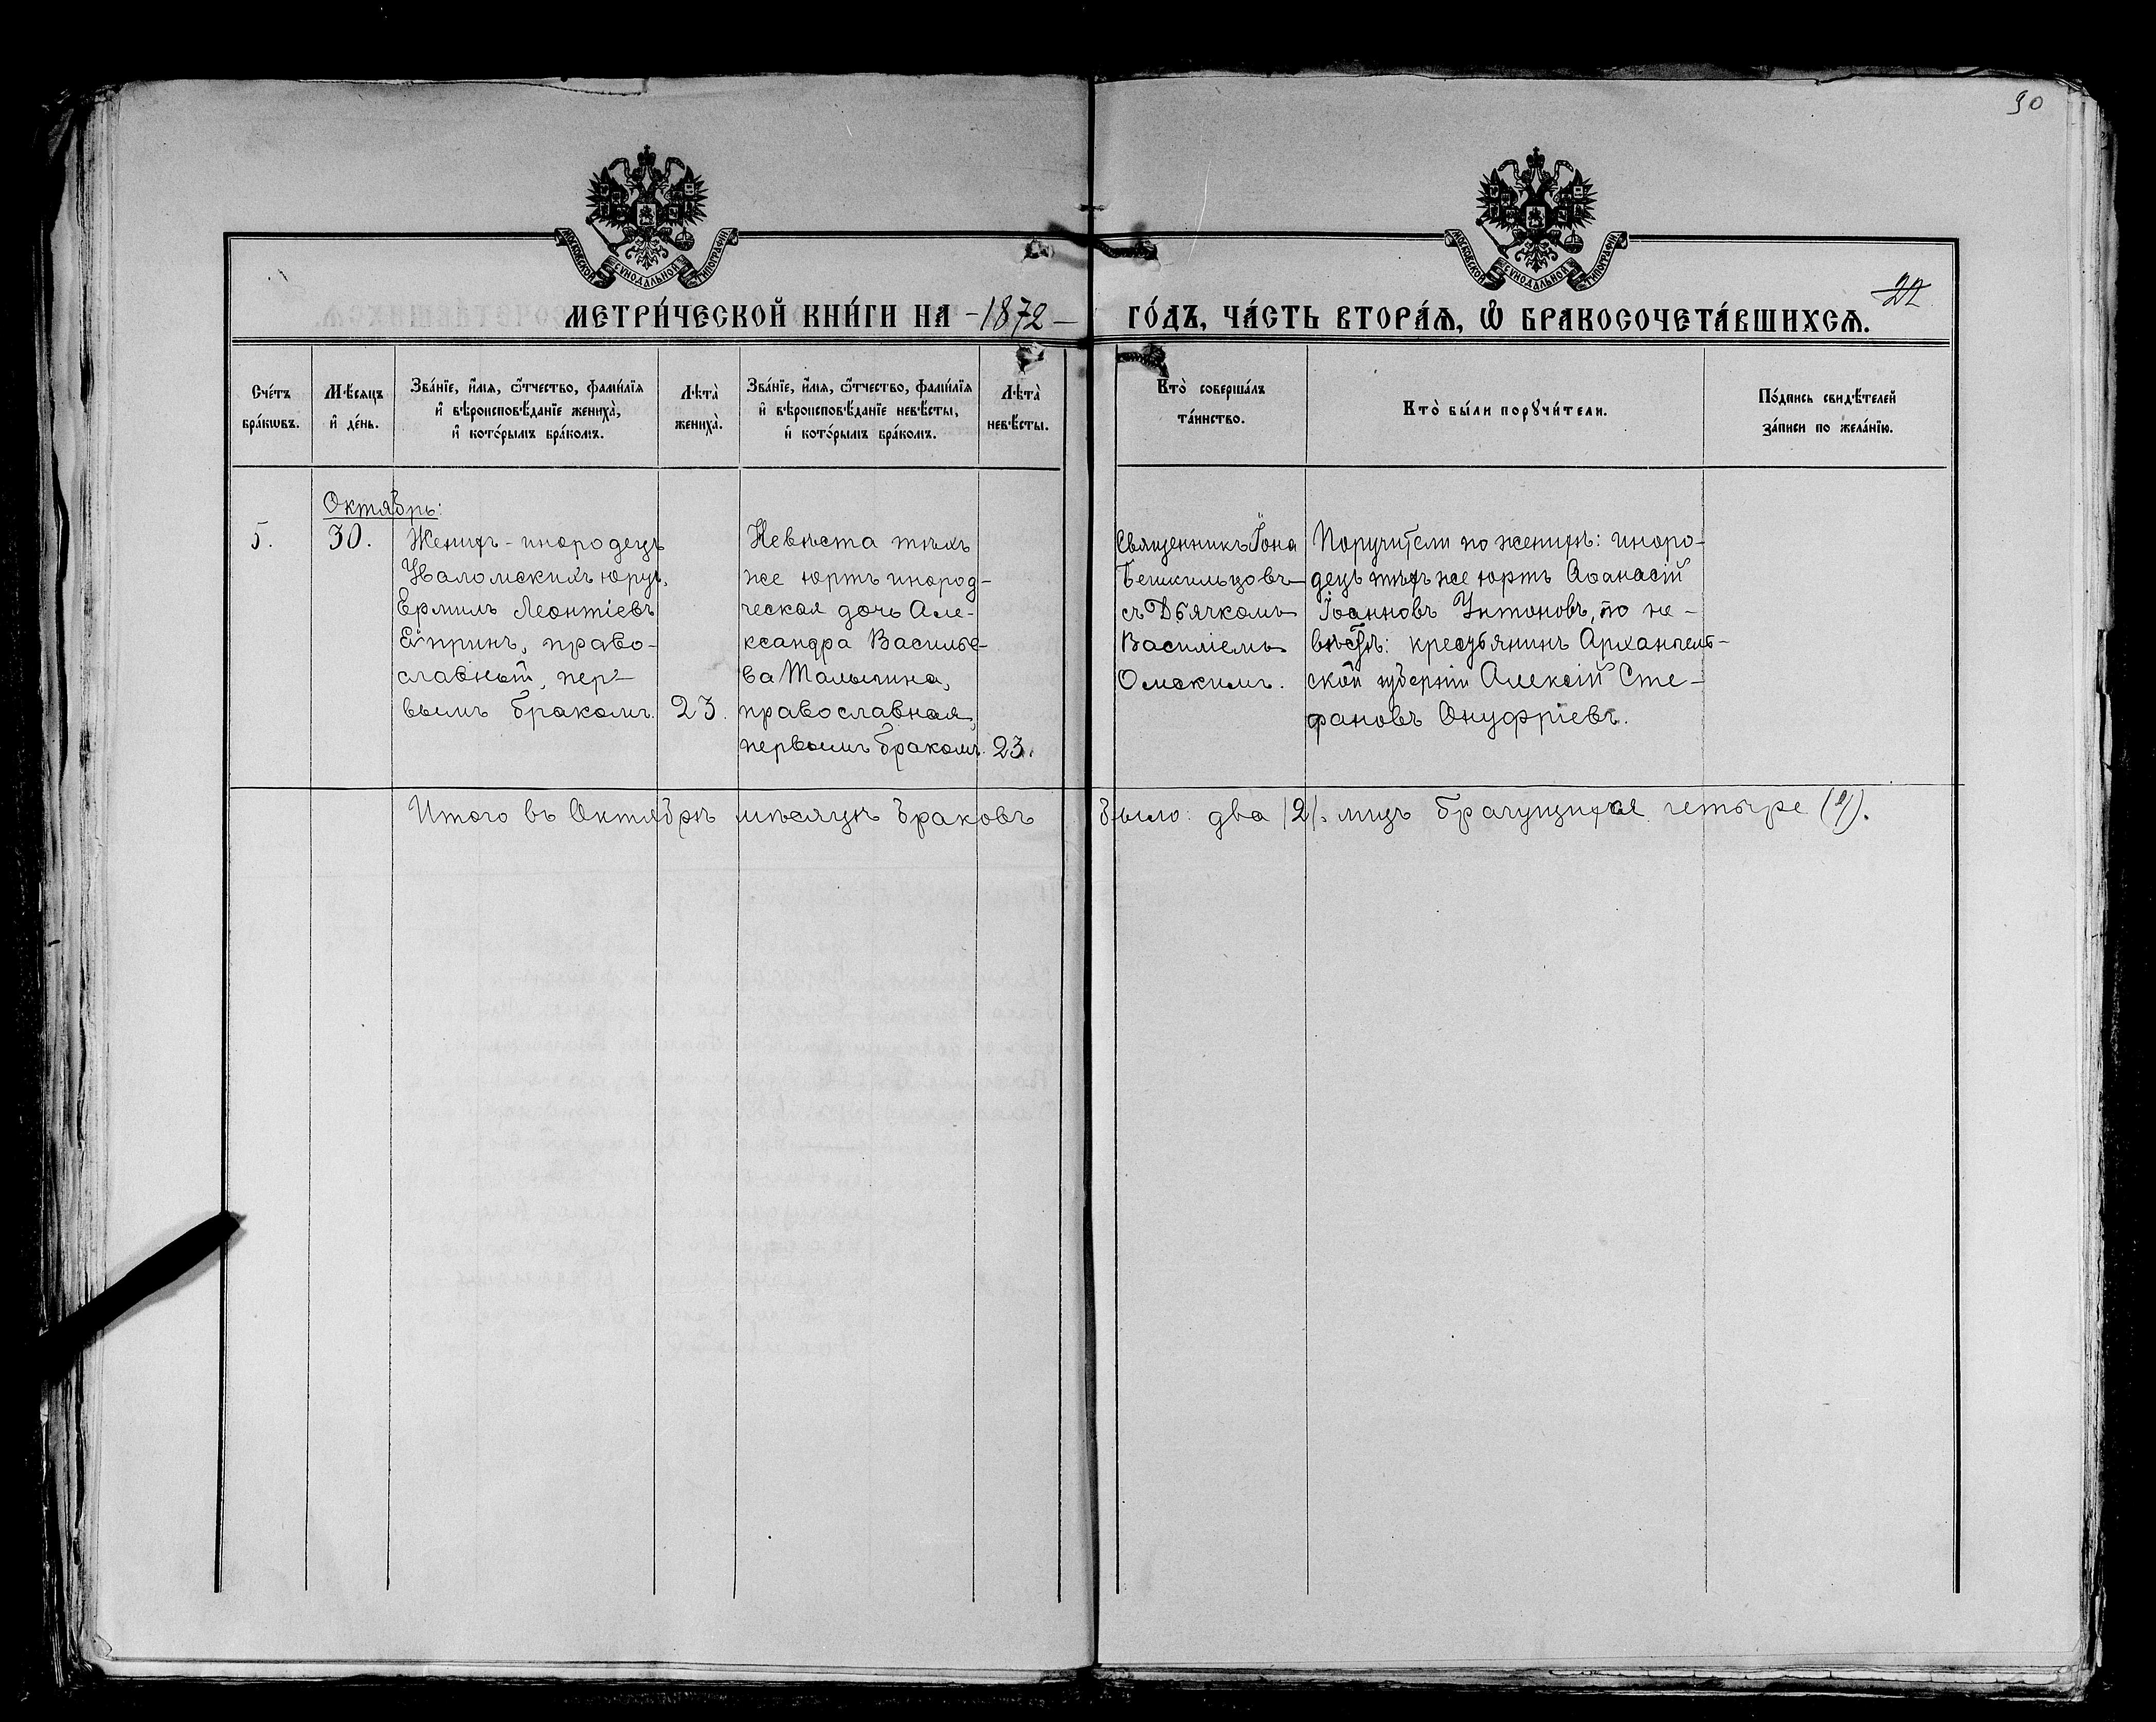 90
МОСКОВСКОЙ СѴНОДАЛЬНОЙ ТИПОГРАФІИ.
МОСКОВСКОЙ СѴНОДАЛЬНОЙ ТИПОГРАФІИ.
22
МЕТРИ́ЧЕСКОЙ КНИ́ГИ НА -1872- ГО́ДЪ, ЧА́СТЬ ВТОРА́Ѧ, Ѡ БРАКОСОЧЕТА́ВШИХСѦ.
Сче́тъ
бра́кѡвъ.
Мѣ́сяцъ
и҆ де́нь.
Зва́нїе, и҆́мя, ѻ҆́тчество, фами́лїя
и҆ вѣроисповѣ́данїе жениха̀,
и҆ кото́рымъ бра́комъ.
Лѣта̀
жениха̀.
Зва́нїе, и҆́мя, ѻ҆́тчество, фами́лїя
и҆ вѣроисповѣ́данїе невѣ́сты,
и҆ кото́рымъ бра́комъ.
Лѣта̀
невѣ́сты.
Кто̀ соверша́лъ
та́инство.
Кто̀ бы́ли порꙋчи́тели.
По́дпись свидѣ́телей
за́писи по жела́нїю.
Октябрь:
5.
30.
Женихъ - инородецъ
юртъ,
Ермилъ Леонтіевъ
право-
славный, пер-
вымъ бракомъ.
23.
Невѣста тѣхъ
же юртъ инород-
ческая дочь Але-
ксандра Василье-
ва
православная,
первымъ бракомъ.
23.
Священникъ Іона
Бешкильцовъ
съ Дьячкомъ
Василіемъ
Омскимъ.
Поручители по женихѣ: иноро-
децъ тѣхъ же юртъ Аѳанасій
Іоанновъ по не-
вѣстѣ: крестьянинъ Архангель-
ской губерніи Алексій Сте-
фановъ Онуфріевъ.
Итого въ Октябрѣ мѣсяцѣ браковъ было: два (2). лицъ брачущихся четыре (4).